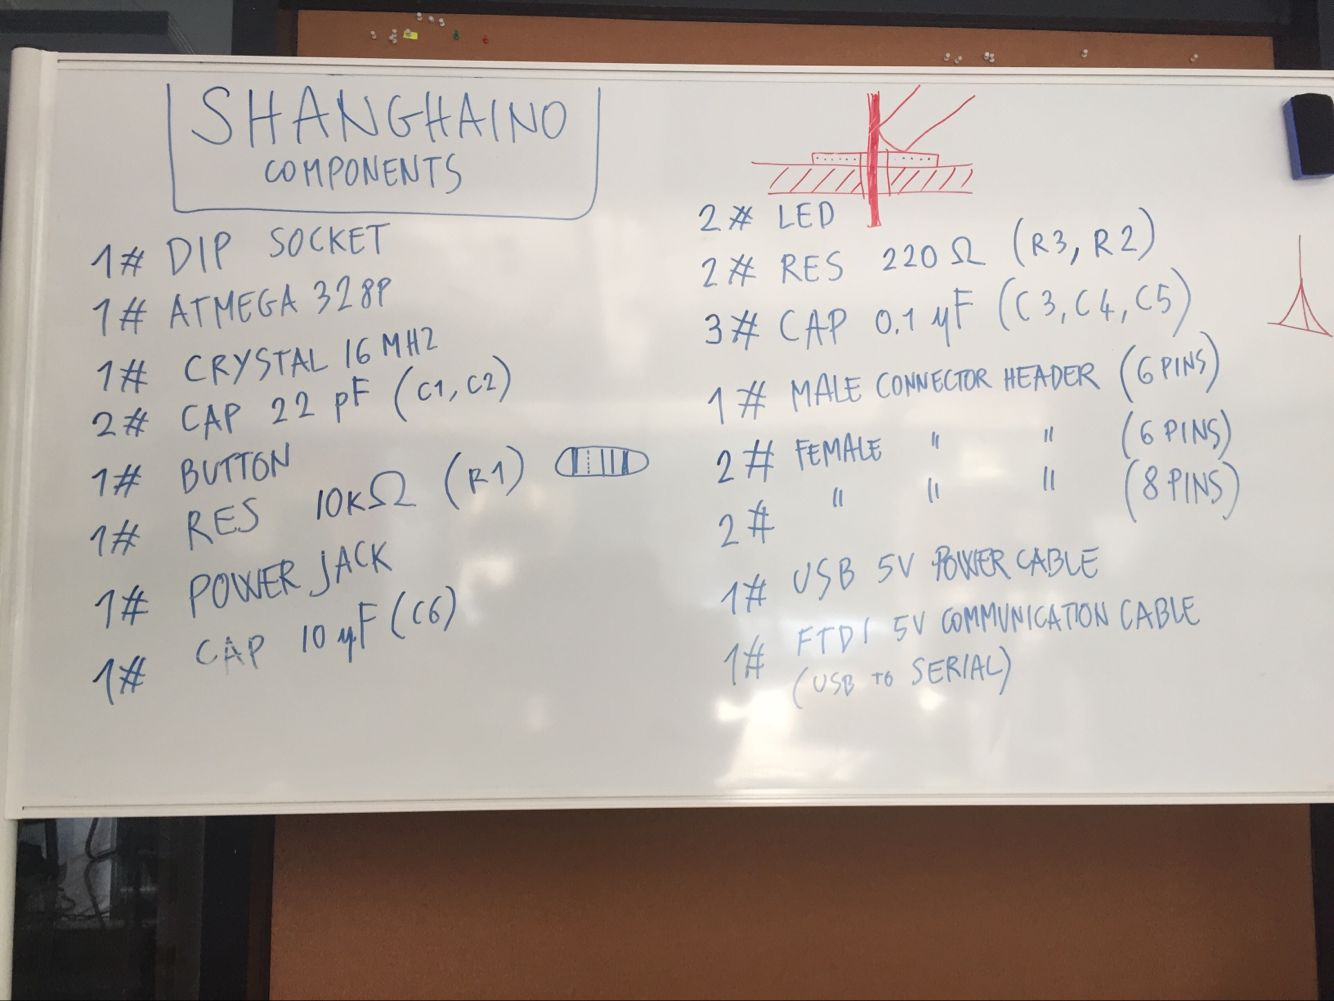 SHANGHAINO
COMPONENTS
1# DIP SOCKET
1# ATMEGA 328P
1# CRYSTAL 16 MHZ
2# CAP 22 pF (C1, C2)
1# BUTTON
1# RES 10KΩ (R1)
1# POWER JACK
1# CAP 10 µF (C6)
2# LED
2# RES 220 Ω (R3, R2)
3# CAP 0.1 µF (C3, C4, C5)
1# MALE CONNECTOR HEADER (6 PINS)
2# FEMALE " " (6 PINS)
2# " " " (8 PINS)
1# USB 5V POWER CABLE
1# FTDI 5V COMMUNICATION CABLE
(USB TO SERIAL)